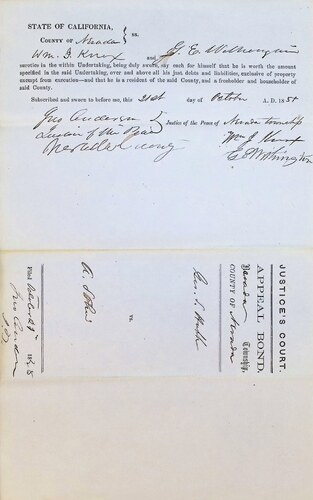 STATE OF CALIFORNIA,
COUNTY OF Nevada } ss.
Wm. J. Knox and G. E. Withington
sureties in the within Undertaking, being duly sworn, say each for himself that he is worth the amount
specified in the said Undertaking, over and above all his just debts and liabilities, exclusive of property
exempt from execution—and that he is a resident of the said County, and a freeholder and householder of
said County.
Subscribed and sworn to before me, this 21st day of October A. D. 185
Jno Anderson } Justice of the Peace of Nevada township
Justice of the Peace Wm J. Knox
Nevada County G E Withington
JUSTICE'S COURT.
APPEAL BOND.
Nevada Township,
COUNTY OF Nevada
Geo. S.
vs.
A.
Filed October 185
Jno Anderson
J. P.